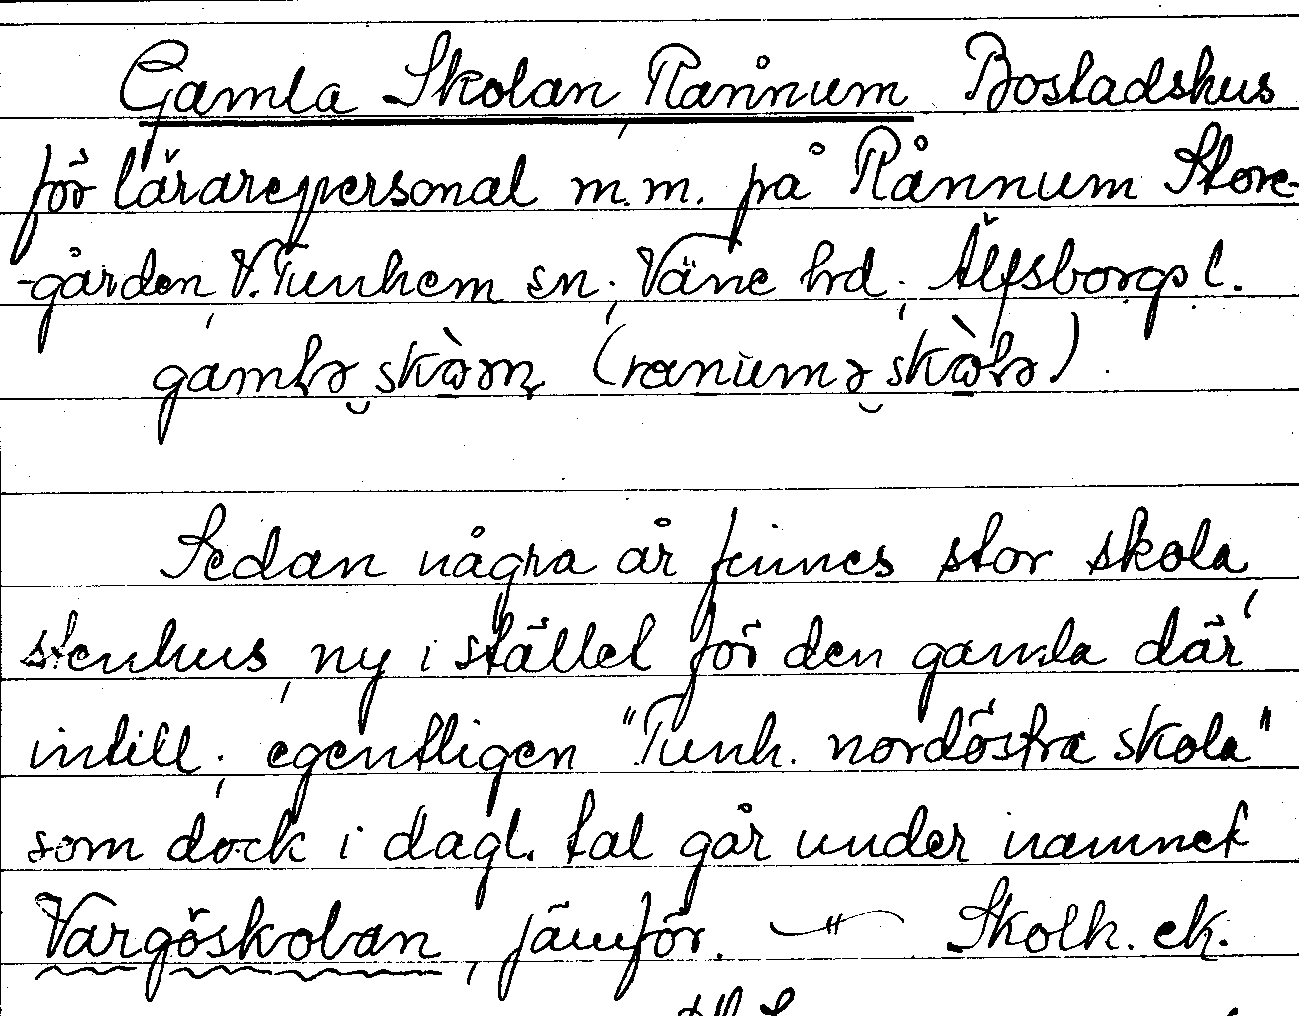 Gamla Skolan, Rånnum Bostadshus
för lärarepersonal m.m. på Rånnum Store-
-gården, V. Tunhem sn; Väne hd; Älfsborgs l.
Sedan några år finnes stor skola,
stenhus, ny i stället för den gamla där
intill; egentligen "Tunh. nordöstra skola"
som dock i dagl. tal går under namnet
Vargöskolan, jämför. — " — Skolh. ek.